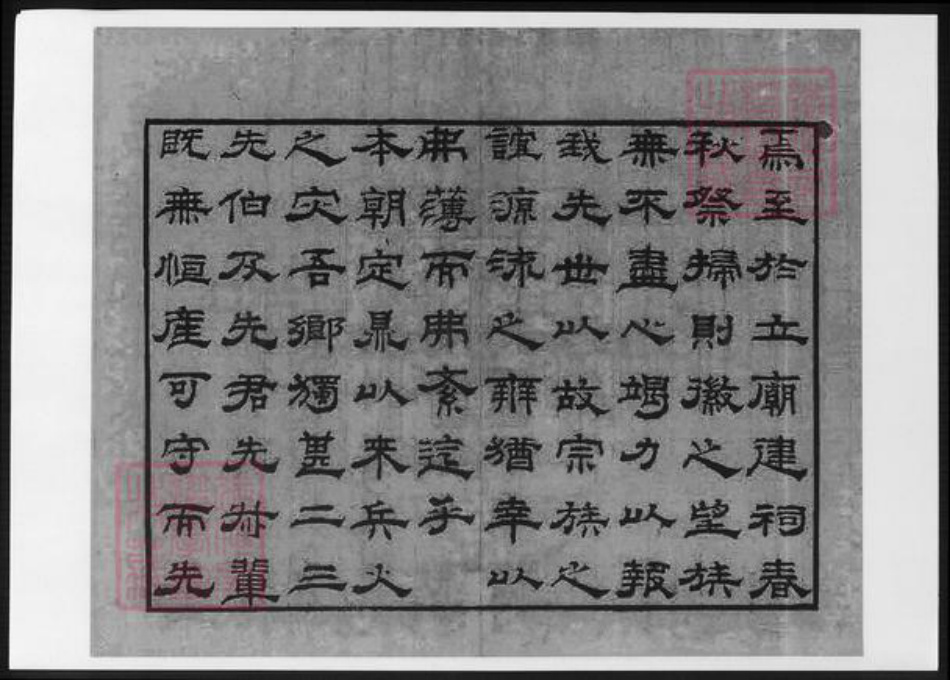 焉至於立廟建祠春
秋祭掃則徽之望族
無不盡心竭力以報
我先世以故宗族之
誼源流之辨猶幸以
弗薄而弗紊迨乎
本朝定鼎以来兵火
之灾吾鄉獨甚二三
先伯及先君先叔輩
既無恒産可守而先